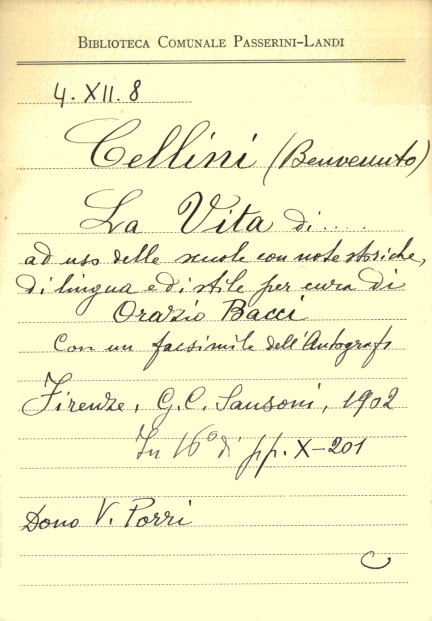 BIBLIOTECA COMUNALE PASSERINI-LANDI
4. XII. 8
Cellini (Benvenuto)
La Vita di.....
ad uso delle scuole con note storiche,
di lingua e di stile per cura di
Orazio Bacci
Con un facsimile dell'Autografo
Firenze, G. C. Sansoni, 1902
In 16° di pp. X-201
Dono V. Porri
C